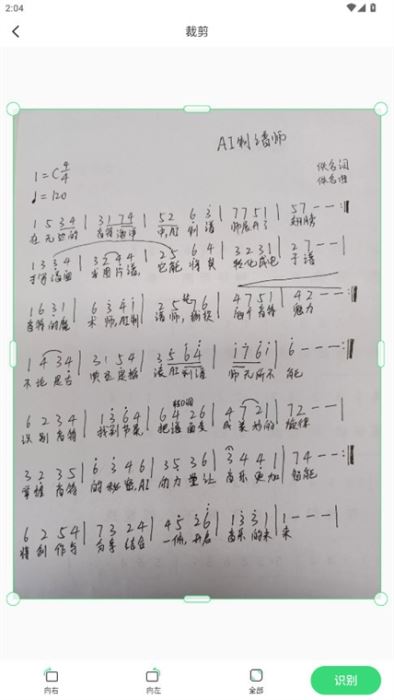 2:04
裁剪
AI制谱师
1=C 4/4
佚名词
♩=120
佚名曲
1 5 3 4 | 3 1 7 4 | 5 2 6 3 | 7 7 5 1 | 5 7 - - :‖
在无边的 音符海洋 中,AI制谱 师展开了 翅膀
1 3 3 4 | 3 2 4 4 | 2 5 6 4 | 3 2 3 1 | 2 7 - -
手写谱面 它能将其 转化成电 子谱
1 6 3 1 | 6 3 4 1 | 2 5 7 6 | 4 7 5 1 | 4 2 - - :‖
音符的魔 术师,AI制 谱师, 每个音符 魅力
1 4 3 4 | 3 1 5 4 | 3 5 6 4 | 1 7 6 1 | 6 - - -
不论是 谱AI制谱 师无所不 能
6 2 3 4 | 1 3 6 4 | 6 4 2 6 | 4 7 2 1 | 7 2 - -
识别音符 找到节奏 把谱面变 成美妙的 旋律
3 2 3 5 | 6 3 4 6 | 3 5 3 6 | 3 4 4 1 | 7 4 - - :‖
掌握音符 的秘密,AI 的力量让 音乐更加 智能
6 2 5 4 | 7 3 2 4 | 4 5 2 6 | 1 3 3 1 | 1 - - - |
作与 结合 一体,开启 音乐的未 来
向右
向左
全部
识别